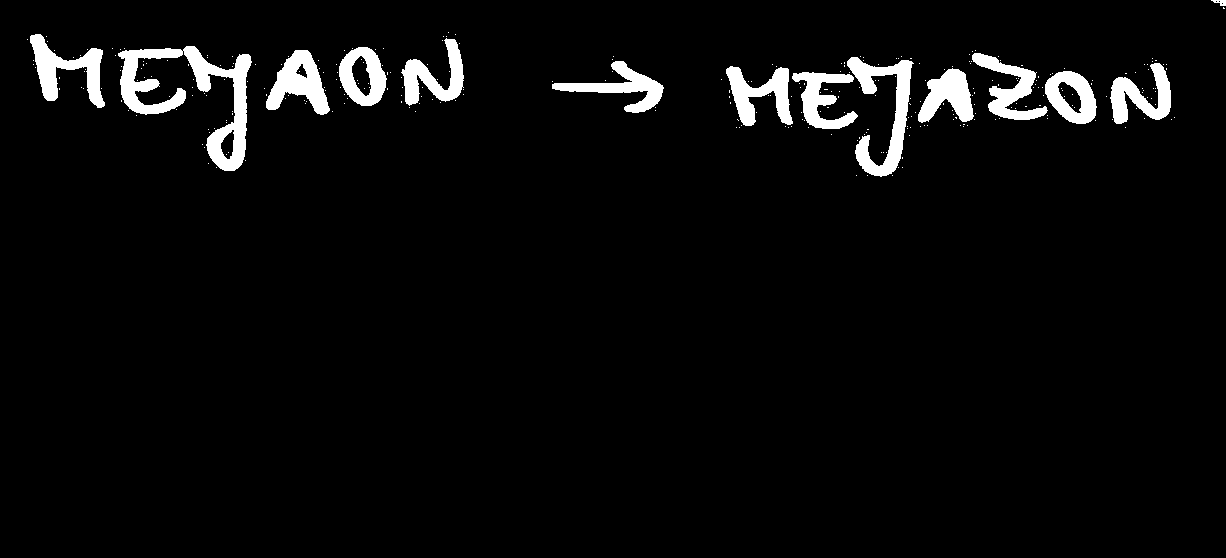 MEJAON → MEJAZON